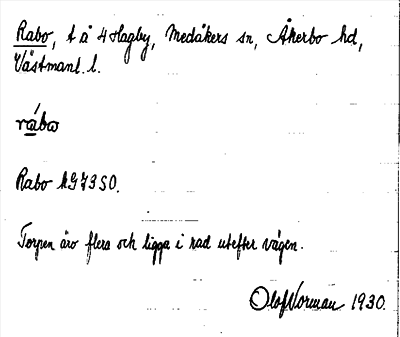 Rabo, t å 4 Hagby, Medåkers sn, Åkerbo hd,
Västmanl. l.
rábω
Rabo kG73SO.
Torpen äro flera och ligga i rad utefter vägen.
Olof Norman 1930.